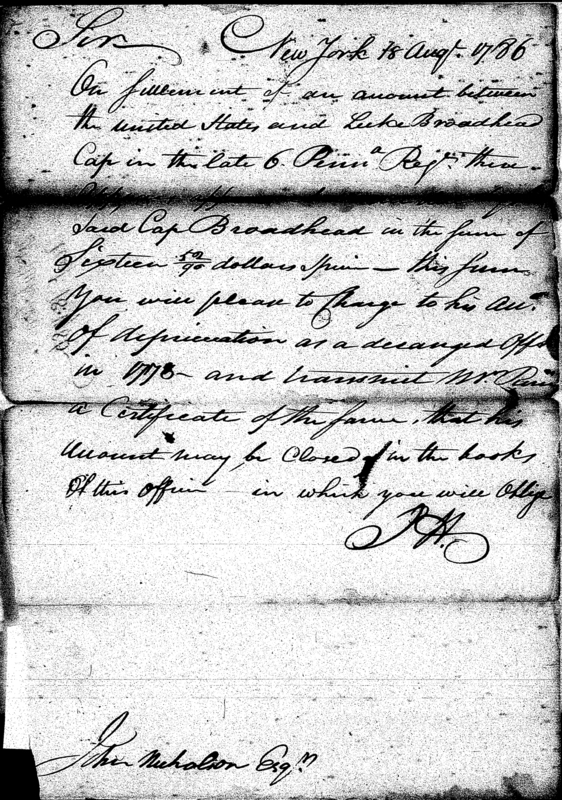 Sir New York 18 Augt. 1786
On settlement of an account between
the united States and Luke Broadhead
Cap in the late 6. Penna Regt. there
said Cap Broadhead in the sum of
Sixteen 52/90 dollars specie — this sum
You will please to Charge to his acct
Of depreciation as a deranged Offr
in 1778 — and transmit Mr.
a Certificate of the same, that his
Account may be Closed in the books
Of this Office in which you will Oblige
John Nicholson Esqr